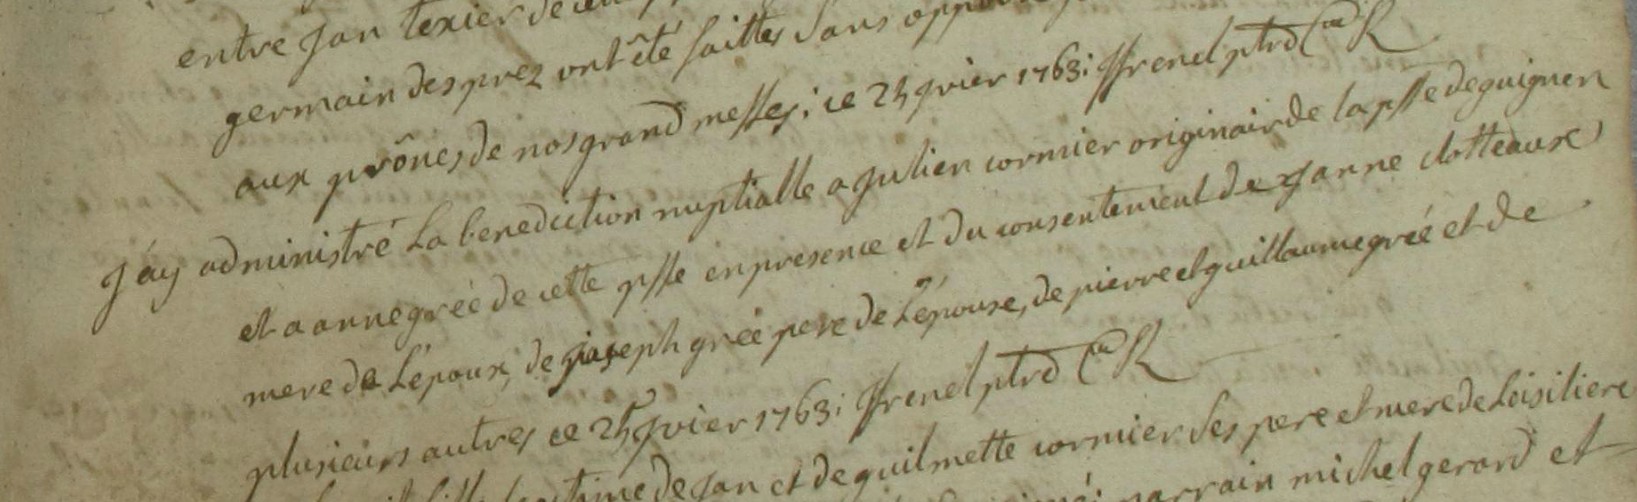 entre Jan texier de
germain desprez ont êté faittes sans
aux prônes de nos grand messes; ce 25 Jvier 1763; ffrenel ptre Cu R
J'ay administré La benediction nuptialle a Julien cormier originair de la psse de guignen
et a anne grée de cette psse en presence et du consentement de Janne clotteaux
mere de L'époux, de joseph grée pere de L'épouse, de pierre et guillaume grée et de
plusieurs autres ce 25 Jvier 1763; ffrenel ptre Cu R
de Jan et de guilmette cormier ses pere et mere de Loisiliere
parrain michel gerard et